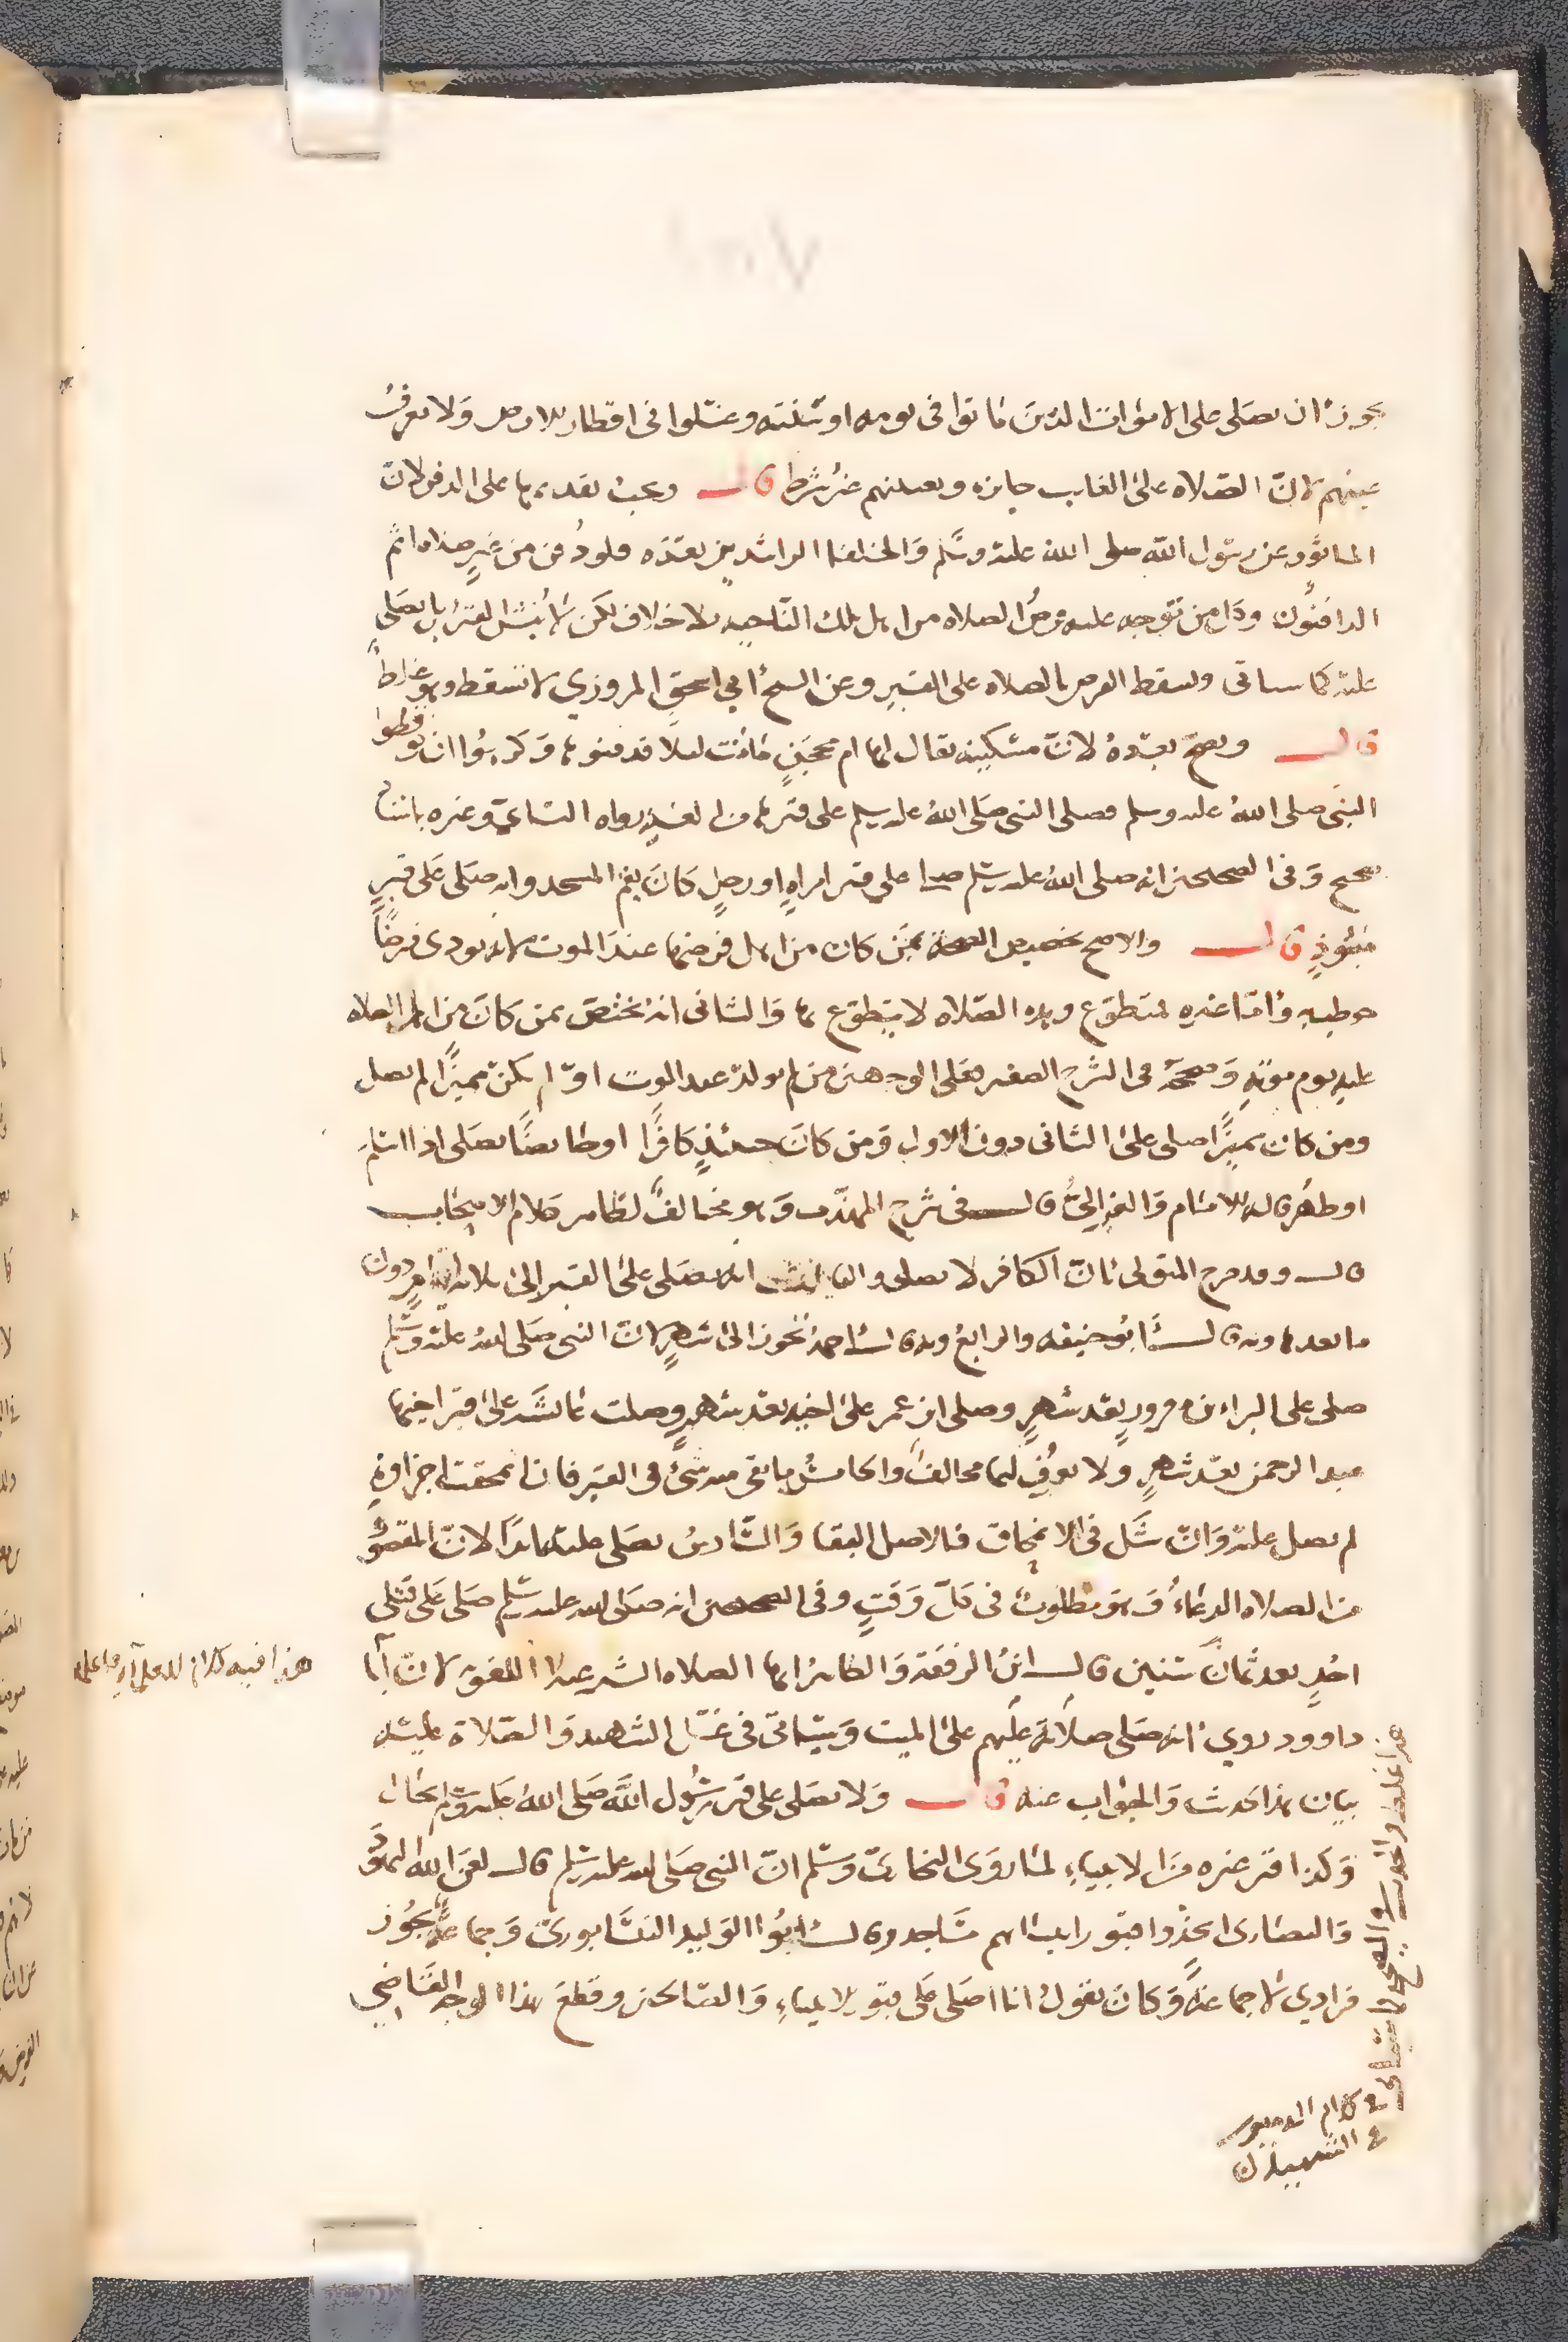 يجوز ان يصلى على الاموات الذين ماتوا في يومه او سنته وغسلوا في اقطار الارض ولا يعرف
عينهم لان الصلاه على الغايب جايزه وتعيينهم غير شرط قال ويجب تقديمها على الدفن لان
الماثور عن رسول الله صلى الله عليه وسلم والخلفا الراشدين بعده فلو دفن من غير صلاه اثم
الدافنون وكل من توجه عليه فرض الصلاه من اهل تلك الناحيه بلا خلاف لكن لا ينبش القبر بل يصلى
عليه كما سياتي ويسقط الفرض بالصلاه على القبر وعن الشيخ ابي اسحق المروزي لا تسقط وهو غلط
قال وتصح بعده لان مسكينه يقال لها ام محجن ماتت ليلا فدفنوها وكرهوا ان يوقظوا
النبي صلى الله عليه وسلم فصلى النبي صلى الله عليه سلم على قبرها من الغد رواه النساي وغيره باسناد
صحيح وفي الصحيحين انه صلى الله عليه سلم صلى على قبر امراه او رجل كان يقم المسجد وانه صلى على قبر
منبوذ قال والاصح تخصيص الصحه بمن كان من اهل فرضها عند الموت لانه يودى فرضا
خوطب به واما غيره فمتطوع وهذه الصلاه لا يتطوع بها والثاني انه يختص بمن كان من اهل الصلاه
عليه يوم موته وصححه في الشرح الصغير فعلى الوجهين من لم يولد عند الموت او لم يكن مميزا لم يصل
ومن كان مميزا صلى على الثاني دون الاول ومن كان حينئذ كافرا او حايضا يصلى اذا اسلم
او طهر قاله الامام والغزالي قال في شرح المهذب وهو مخالف لظاهر كلام الاصحاب
قال وقد صرح المتولي بان الكافر لا يصلى والثالث انه يصلى على القبر الى ثلاثه ايام دون
ما بعدها وبه قال ابو حنيفه والرابع وبه قال احمد يجوز الى شهر لان النبي صلى الله عليه وسلم
صلى على البراء بن معرور بعد شهر وصلى ابن عمر على اخيه بعد شهر وصلت عايشه على قبر اخيها
عبد الرحمن بعد شهر ولا يعرف لهما مخالف والخامس ما بقي منه شئ في القبر فان انمحقت اجزاوه
لم يصل عليه وان شك في الانمحاق فالاصل البقا والسادس يصلى عليه ابدا لان المقصود
من الصلاه الدعاء وهو مطلوب في كل وقت وفي الصحيحين انه صلى الله عليه سلم صلى على قتلى
احد بعد ثمان سنين قال ابن الرفعه والظاهر انها الصلاه الشرعيه لا اللغويه لان ابا
داوود روى انه صلى صلاته عليهم على الميت وسياتي في غسل الشهيد والصلاة عليه
بيان هذا الحديث والجواب عنه قال ولا يصلى على قبر رسول الله صلى الله عليه وسلم بحال
وكذا قبر غيره من الانبياء لما روى البخاري وسلم ان النبي صلى الله عليه سلم قال لعن الله اليهود
والنصارى اتخذوا قبور انبيائهم مساجد وقال ابوا الوليد النيسابوري وجماعه يجوز
فرادي لا جماعة وكان يقول انا اصلى على قبور الانبياء والصالحين وقطع بهذا الوجه القاضي
هذا فيه كلام
هذا غلط
في كلام الدميري
في الشهيد